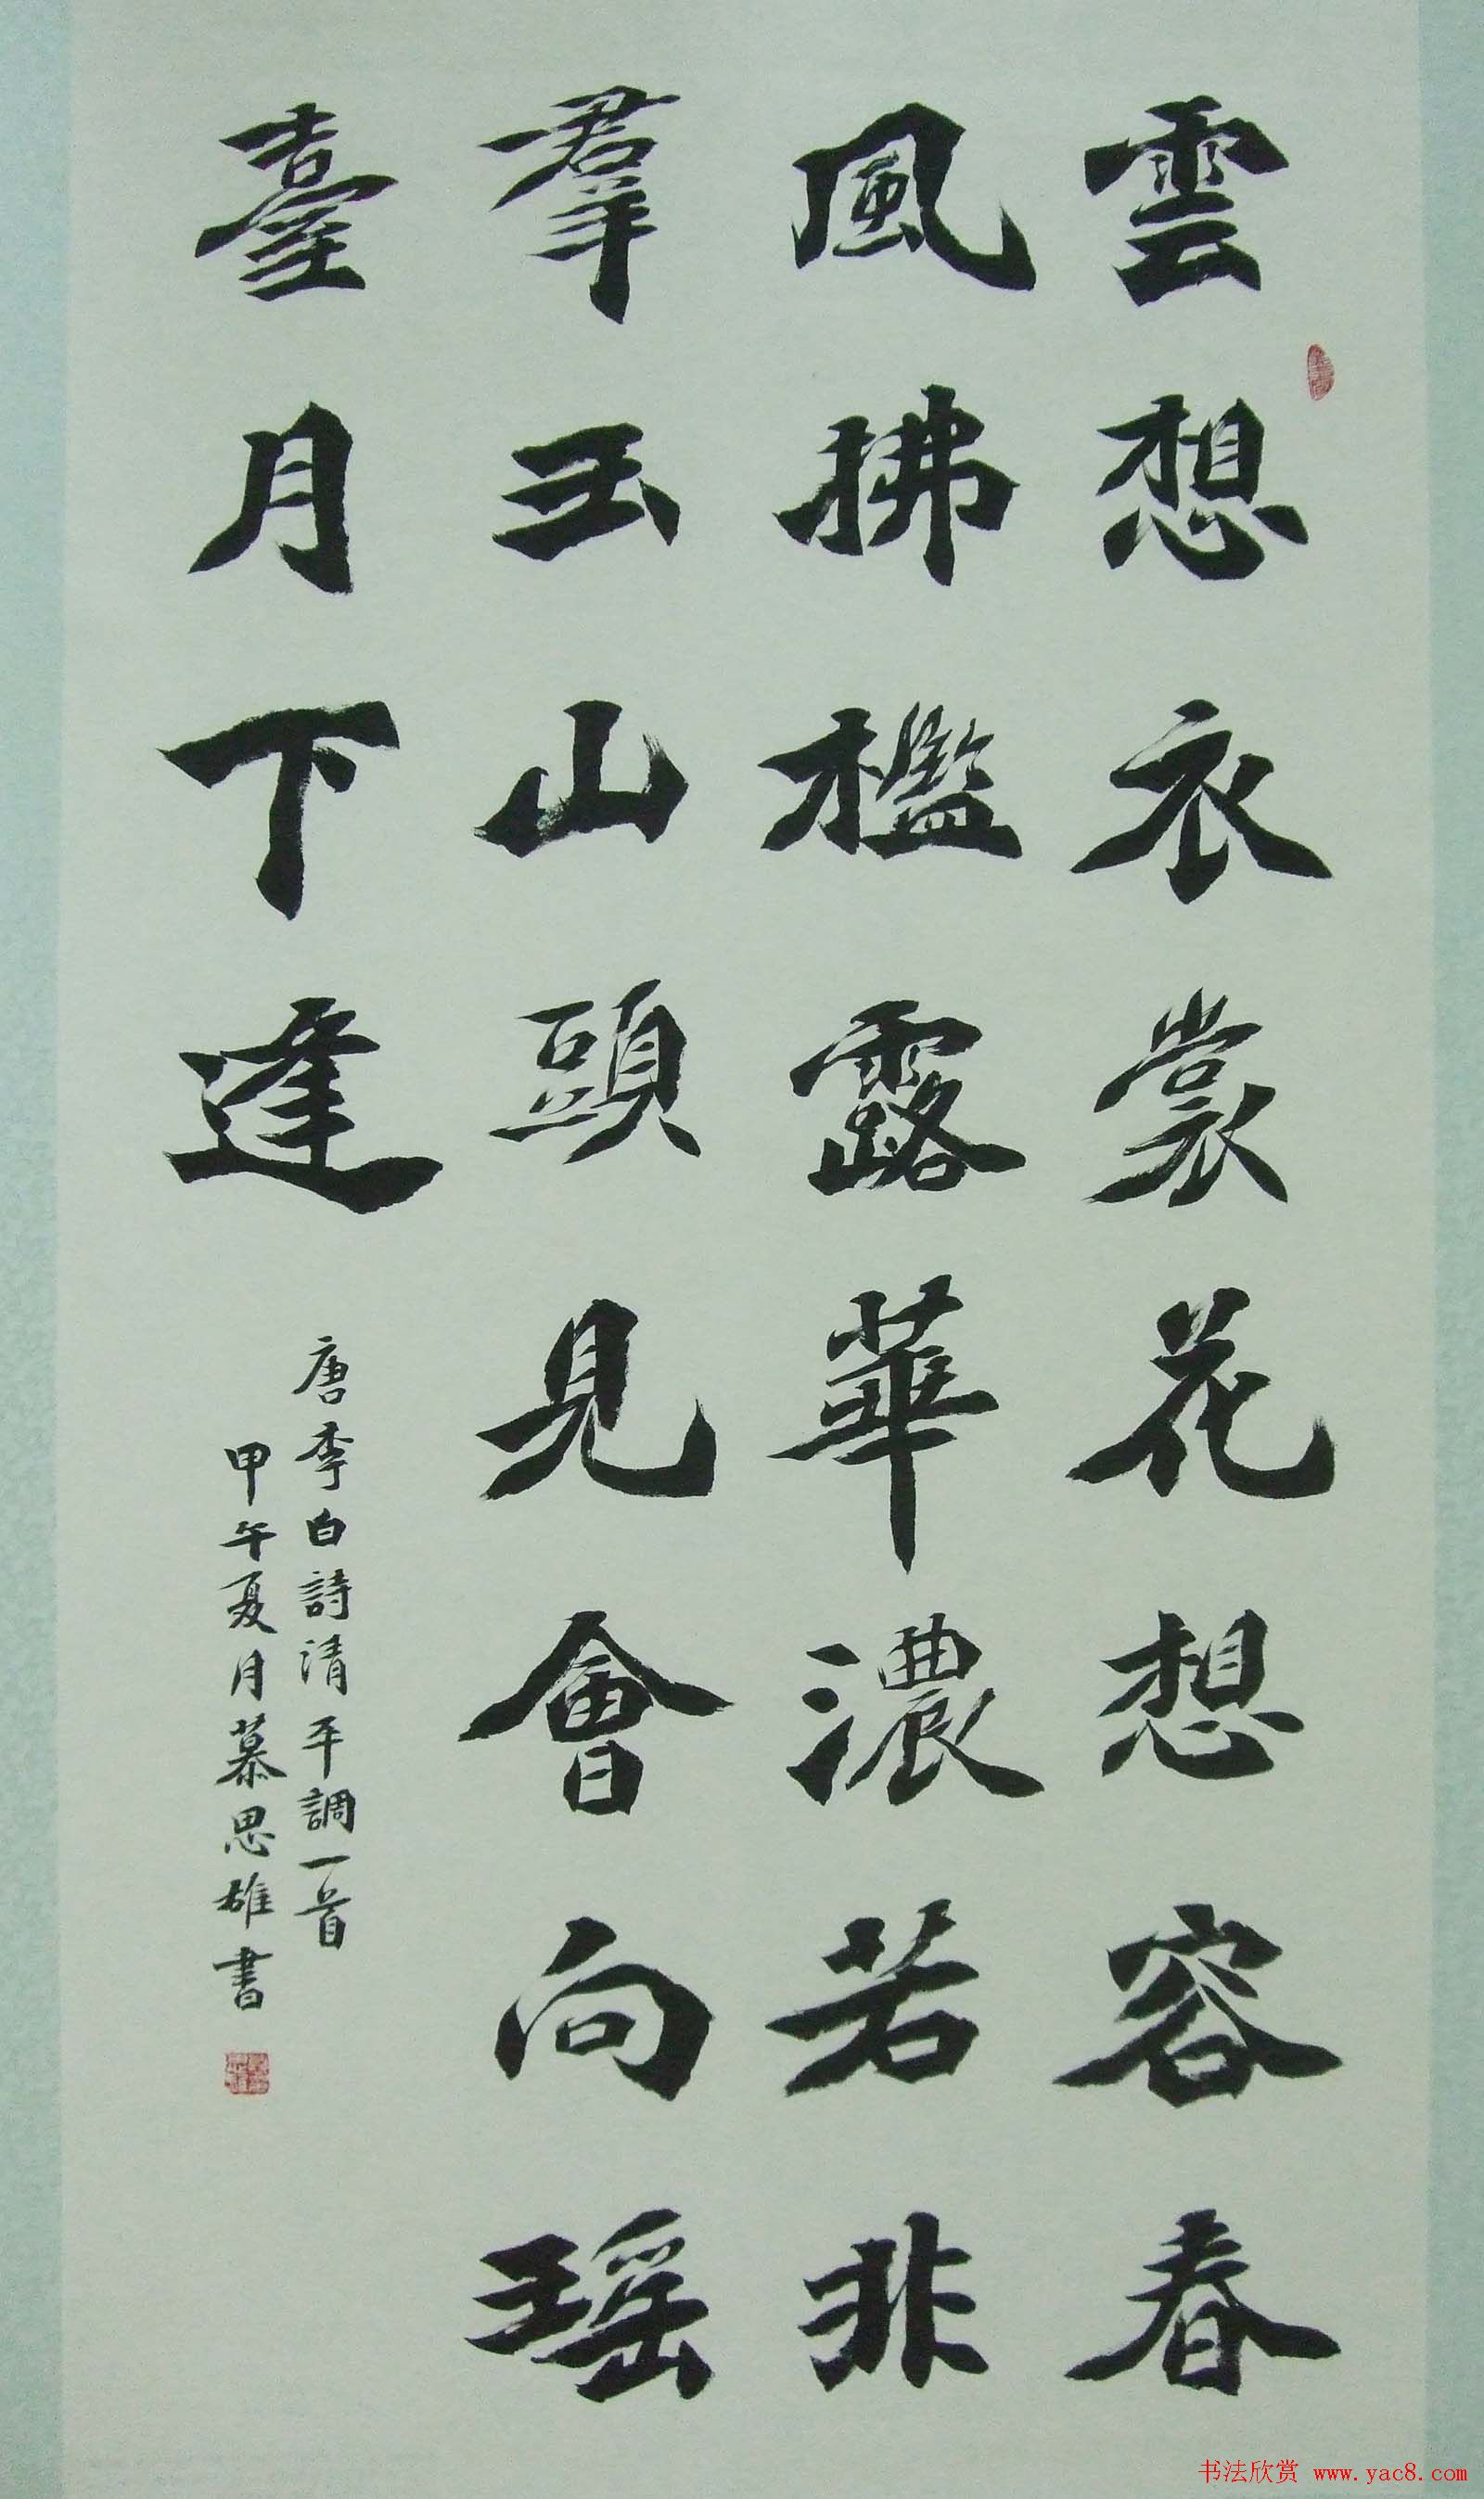 雲想衣裳花想容春
風拂檻露華濃若非
羣玉山頭見會向瑶
臺月下逢
唐李白詩清平調一首
甲午夏月慕思雄書
书法欣赏 www.yac8.com